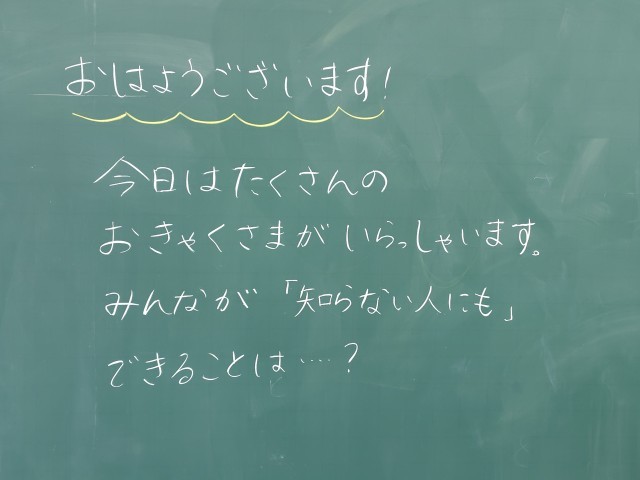 おはようございます!
今日はたくさんの
おきゃくさまがいらっしゃいます。
みんなが「知らない人にも」
できることは‥‥?